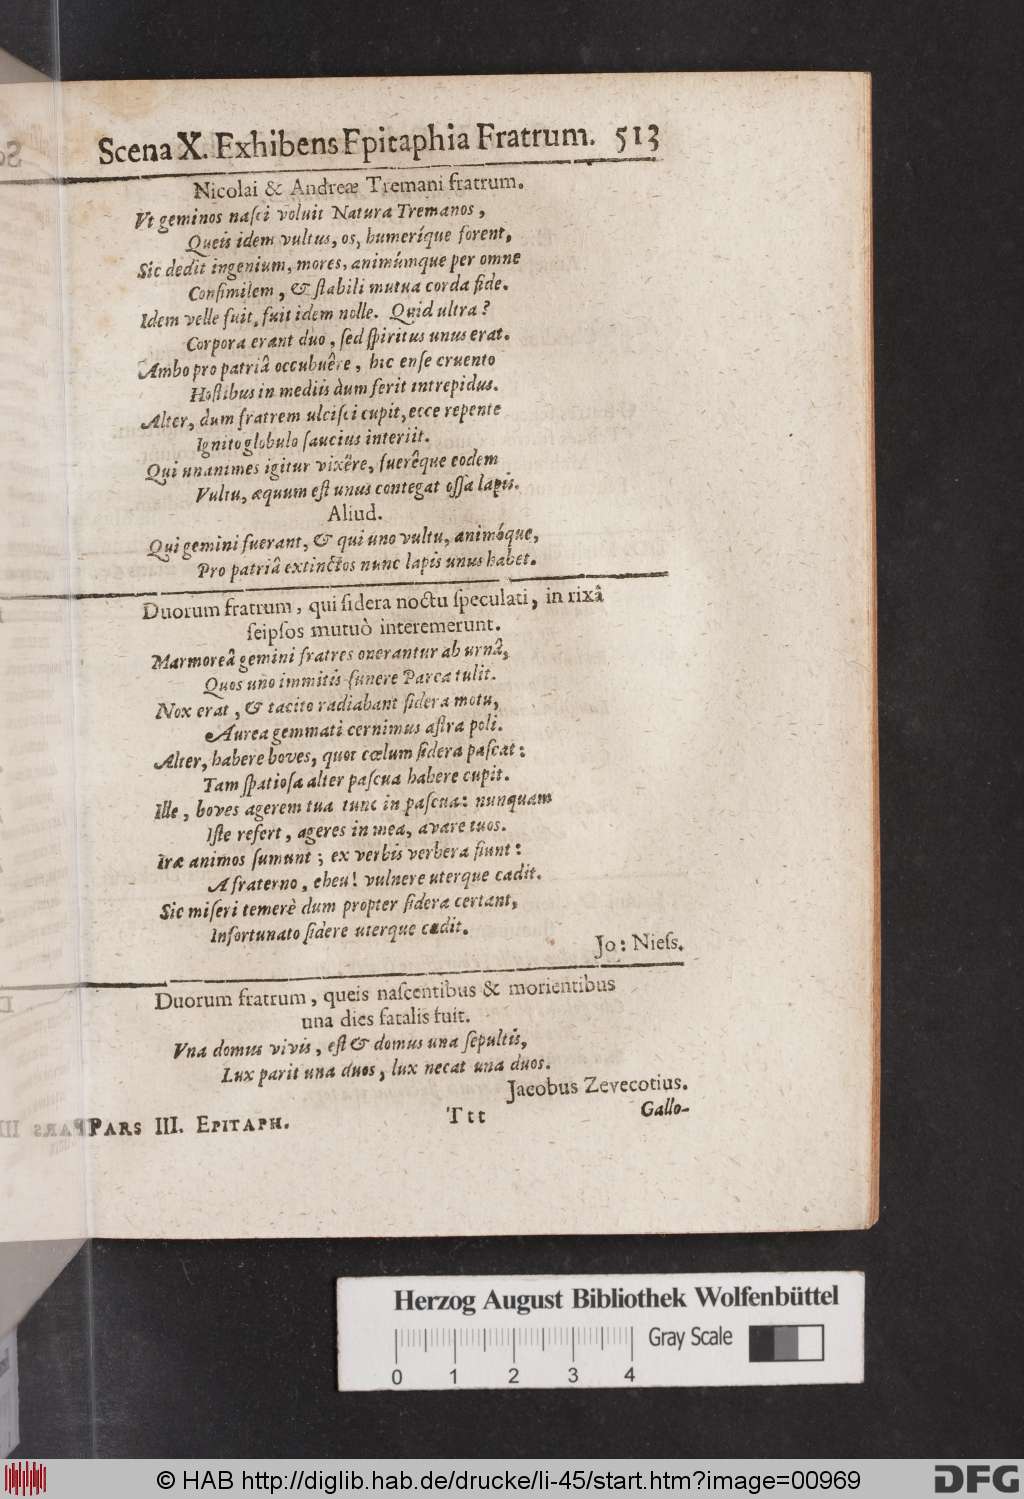 Scena X. Exhibens Epitaphia Fratrum. 513
Nicolai & Andreæ Tremani fratrum.
Vt geminos naſci voluit Natura Tremanos,
Queis idem vultus, os, humeríque forent,
Sic dedit ingenium, mores, animúmque per omne
Conſimilem, & ſtabili mutua corda fide.
Idem velle fuit, fuit idem nolle. Quid ultra?
Corpora erant duo, ſed ſpiritus unus erat.
Ambo pro patriâ occubuêre, hic enſe cruento
Hoſtibus in mediis dum ferit intrepidus.
Alter, dum fratrem ulciſci cupit, ecce repente
Ignito globulo ſaucius interiit.
Qui unanimes igitur vixêre, fuerêque eodem
Vultu, æquum eſt unus contegat oſſa lapis.
Aliud.
Qui gemini fuerant, & qui uno vultu, animóque,
Pro patriâ extinctos nunc lapis unus habet.
Duorum fratrum, qui ſidera noctu ſpeculati, in rixâ
ſeipſos mutuò interemerunt.
Marmoreâ gemini fratres onerantur ab urnâ,
Quos uno immitis funere Parca tulit.
Nox erat, & tacito radiabant ſidera motu,
Aurea gemmati cernimus aſtra poli.
Alter, habere boves, quot cœlum ſidera paſcat:
Tam ſpatioſa alter paſcua habere cupit.
Ille, boves agerem tua tunc in paſcua: nunquam
Iſte refert, ageres in mea, avare tuos.
Iræ animos ſumunt; ex verbis verbera fiunt:
A fraterno, eheu! vulnere uterque cadit.
Sic miſeri temerè dum propter ſidera certant,
Infortunato ſidere uterque cadit.
Jo: Nieſs.
Duorum fratrum, queis naſcentibus & morientibus
una dies fatalis fuit.
Vna domus vivis, eſt & domus una ſepultis,
Lux parit una duos, lux necat una duos.
Jacobus Zevecotius.
PARS III. EPITAPH.
Ttt
Gallo-
Herzog August Bibliothek Wolfenbüttel
Gray Scale
0 1 2 3 4
© HAB http://diglib.hab.de/drucke/li-45/start.htm?image=00969
DFG